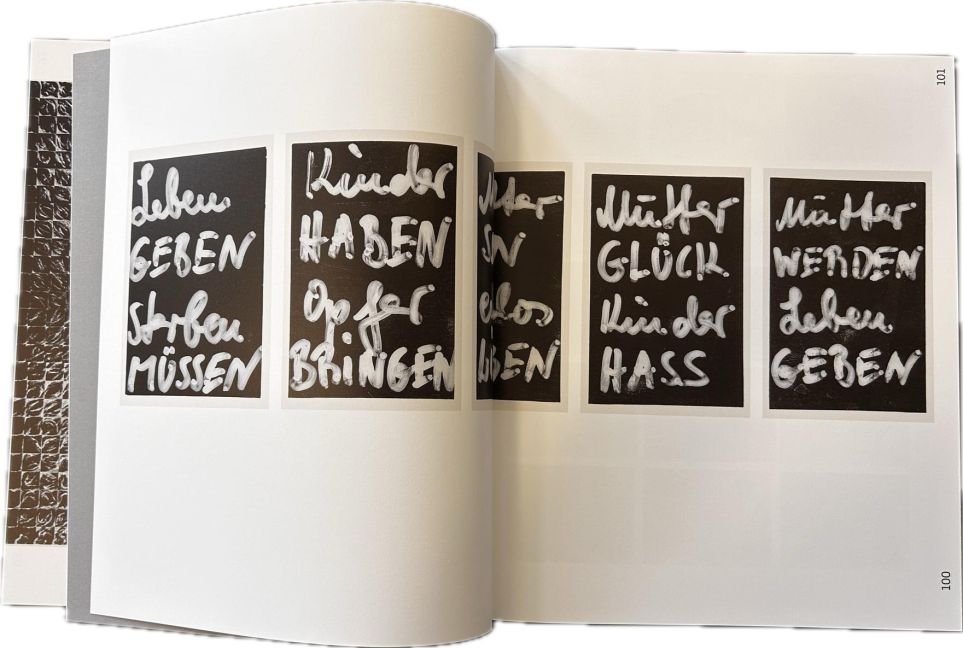 Leben
GEBEN
sterben
MÜSSEN
Kinder
HABEN
Opfer
BRINGEN
Mütter
GLÜCK
Kinder
HASS
Mutter
WERDEN
Leben
GEBEN
101
100